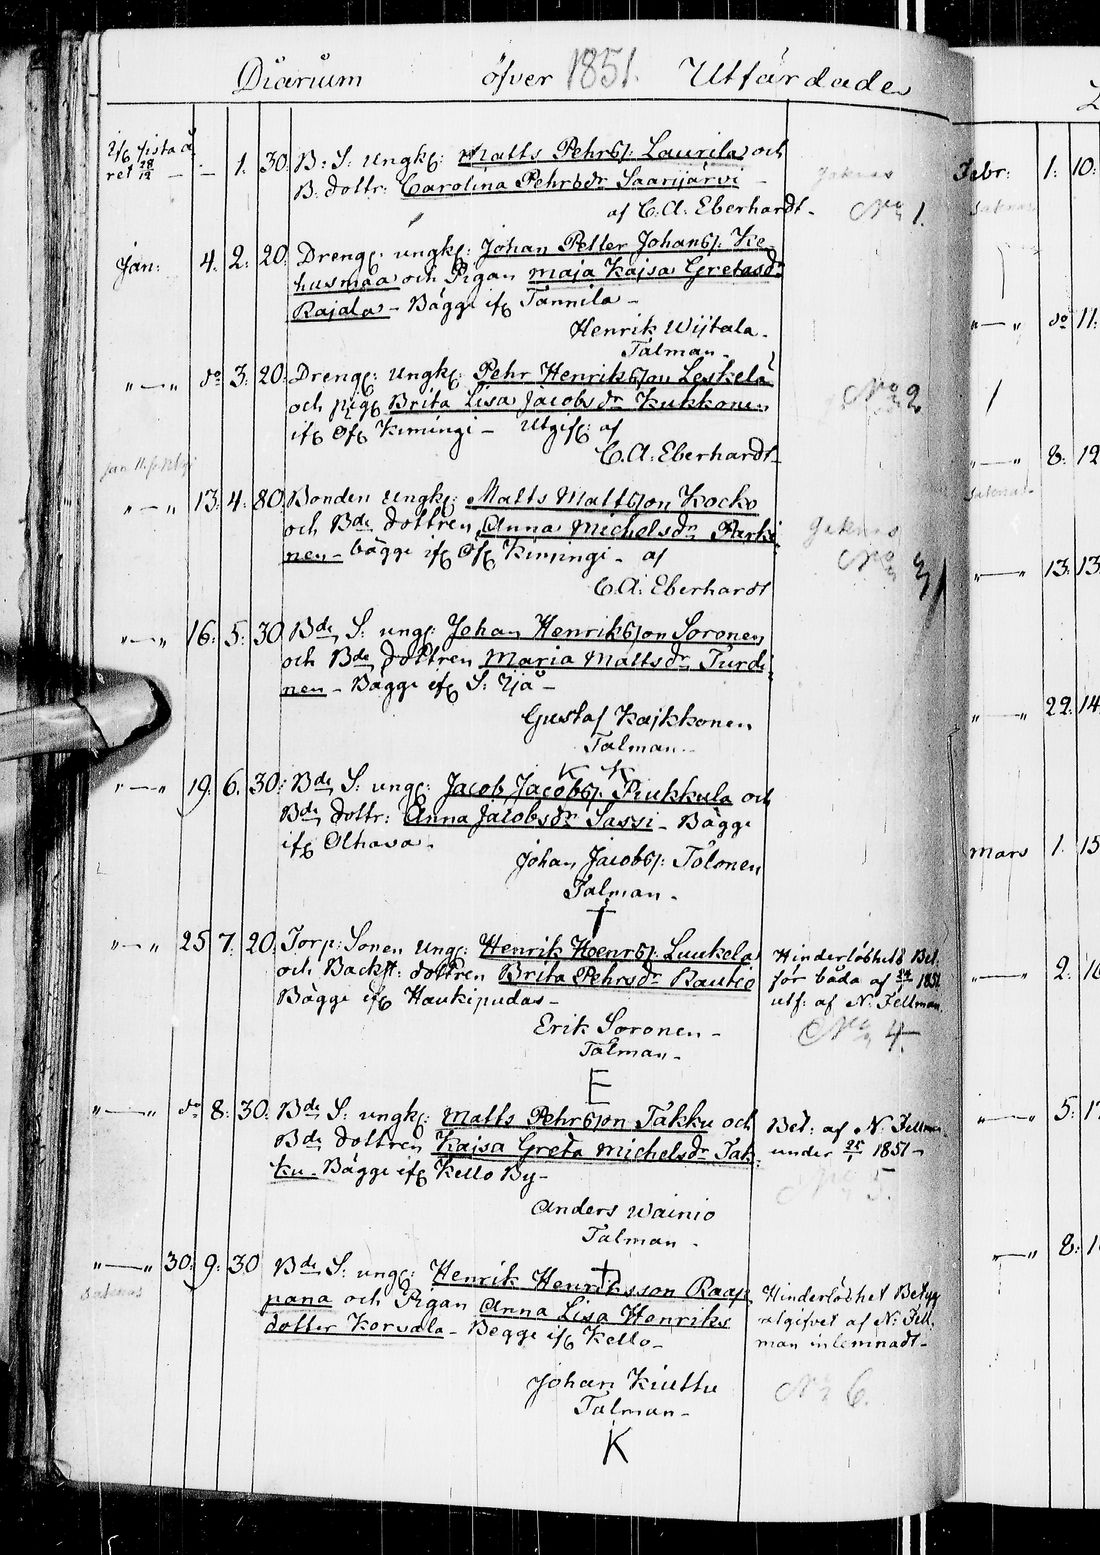 Diarium öfver 1851. Utfärdade
if: sista å
ret 28/12 — — 1. 30. B: S: ungk: Matts Pehrss: Laurila och
B. dottr: Carolina Pehrsdr Saarijärvi —
af C. A. Eberhardt —
No 1.
Jan: 4. 2. 20. Dreng: ungk: Johan Petter Johanss: Ke
husmaa och Pigan Maja Kajsa Gretasdr
Rajala — Bägge if: Jannila —
Henrik Wijtala —
Talman —
" — " do 3. 20. Dreng: ungk: Pehr Henriksson Leskelä
och pig: Brita Lisa Jacobsdr Kukkonen
if: Öf: Kimingi — Utgif: af
C. A. Eberhardt —
No 2
" — " 13. 4. 80. Bonden ungk: Matts Mattsson Kocko
och Bde dottren Anna Michelsdr Parki
nen — bägge if: Öf: Kimingi — af
C. A. Eberhardt
Saknas
No 3
" — " 16. 5. 30. Bde S: ung: Johan Henriksson Soronen
och Bde dottren Maria Mattsdr Turdi
nen — Bägge if: S: Ijå —
Gustaf Kajkkonen
Talman —
" — " 19. 6. 30. Bde S: ung: Jacob Jacobss: Piukkula och
Bde dottr: Anna Jacobsdr Sassi — Bägge
if: Olhava —
Johan Jacobss: Tolonen
Talman —
" — " 25 7. 20. Torp: Sonen ung: Henrik Henrss: Luukela
och Backst: dottren Brita Pehrsdr Rautio
Bägge if: Haukipudas —
Erik Soronen —
Talman —
E
Hinderlöshets Bet.
för båda af 1851
utf: af N. Fellman
No 4.
" — " do 8. 30. Bde S: ungk: Matts Pehrsson Takku och
Bde dottren Kajsa Greta Michelsdr Tak
ku — Bägge if: Kello By —
Anders Wainio
Talman —
Bet: af N. Fellman
under 25/1 1851 —
No 5.
" — " 30. 9. 30 Bde S: ung: Henrik Henriksson Raap
pana och Pigan Anna Lisa Henriks
dotter Korvala — Begge if: Kello —
Johan Kiuttu
Talman —
K
Saknas
Hinderlöshet Betyg
utgifvet af N: Fell
man inlemnadt —
No 6.
Febr: 1. 10.
Saknas
" — " do 11.
" — " 8. 12
Saknas —
" — " 13. 13.
" — " 29. 14.
Mars 1. 15
" — " 2. 16
" — " 5. 17
" — " 8. 1